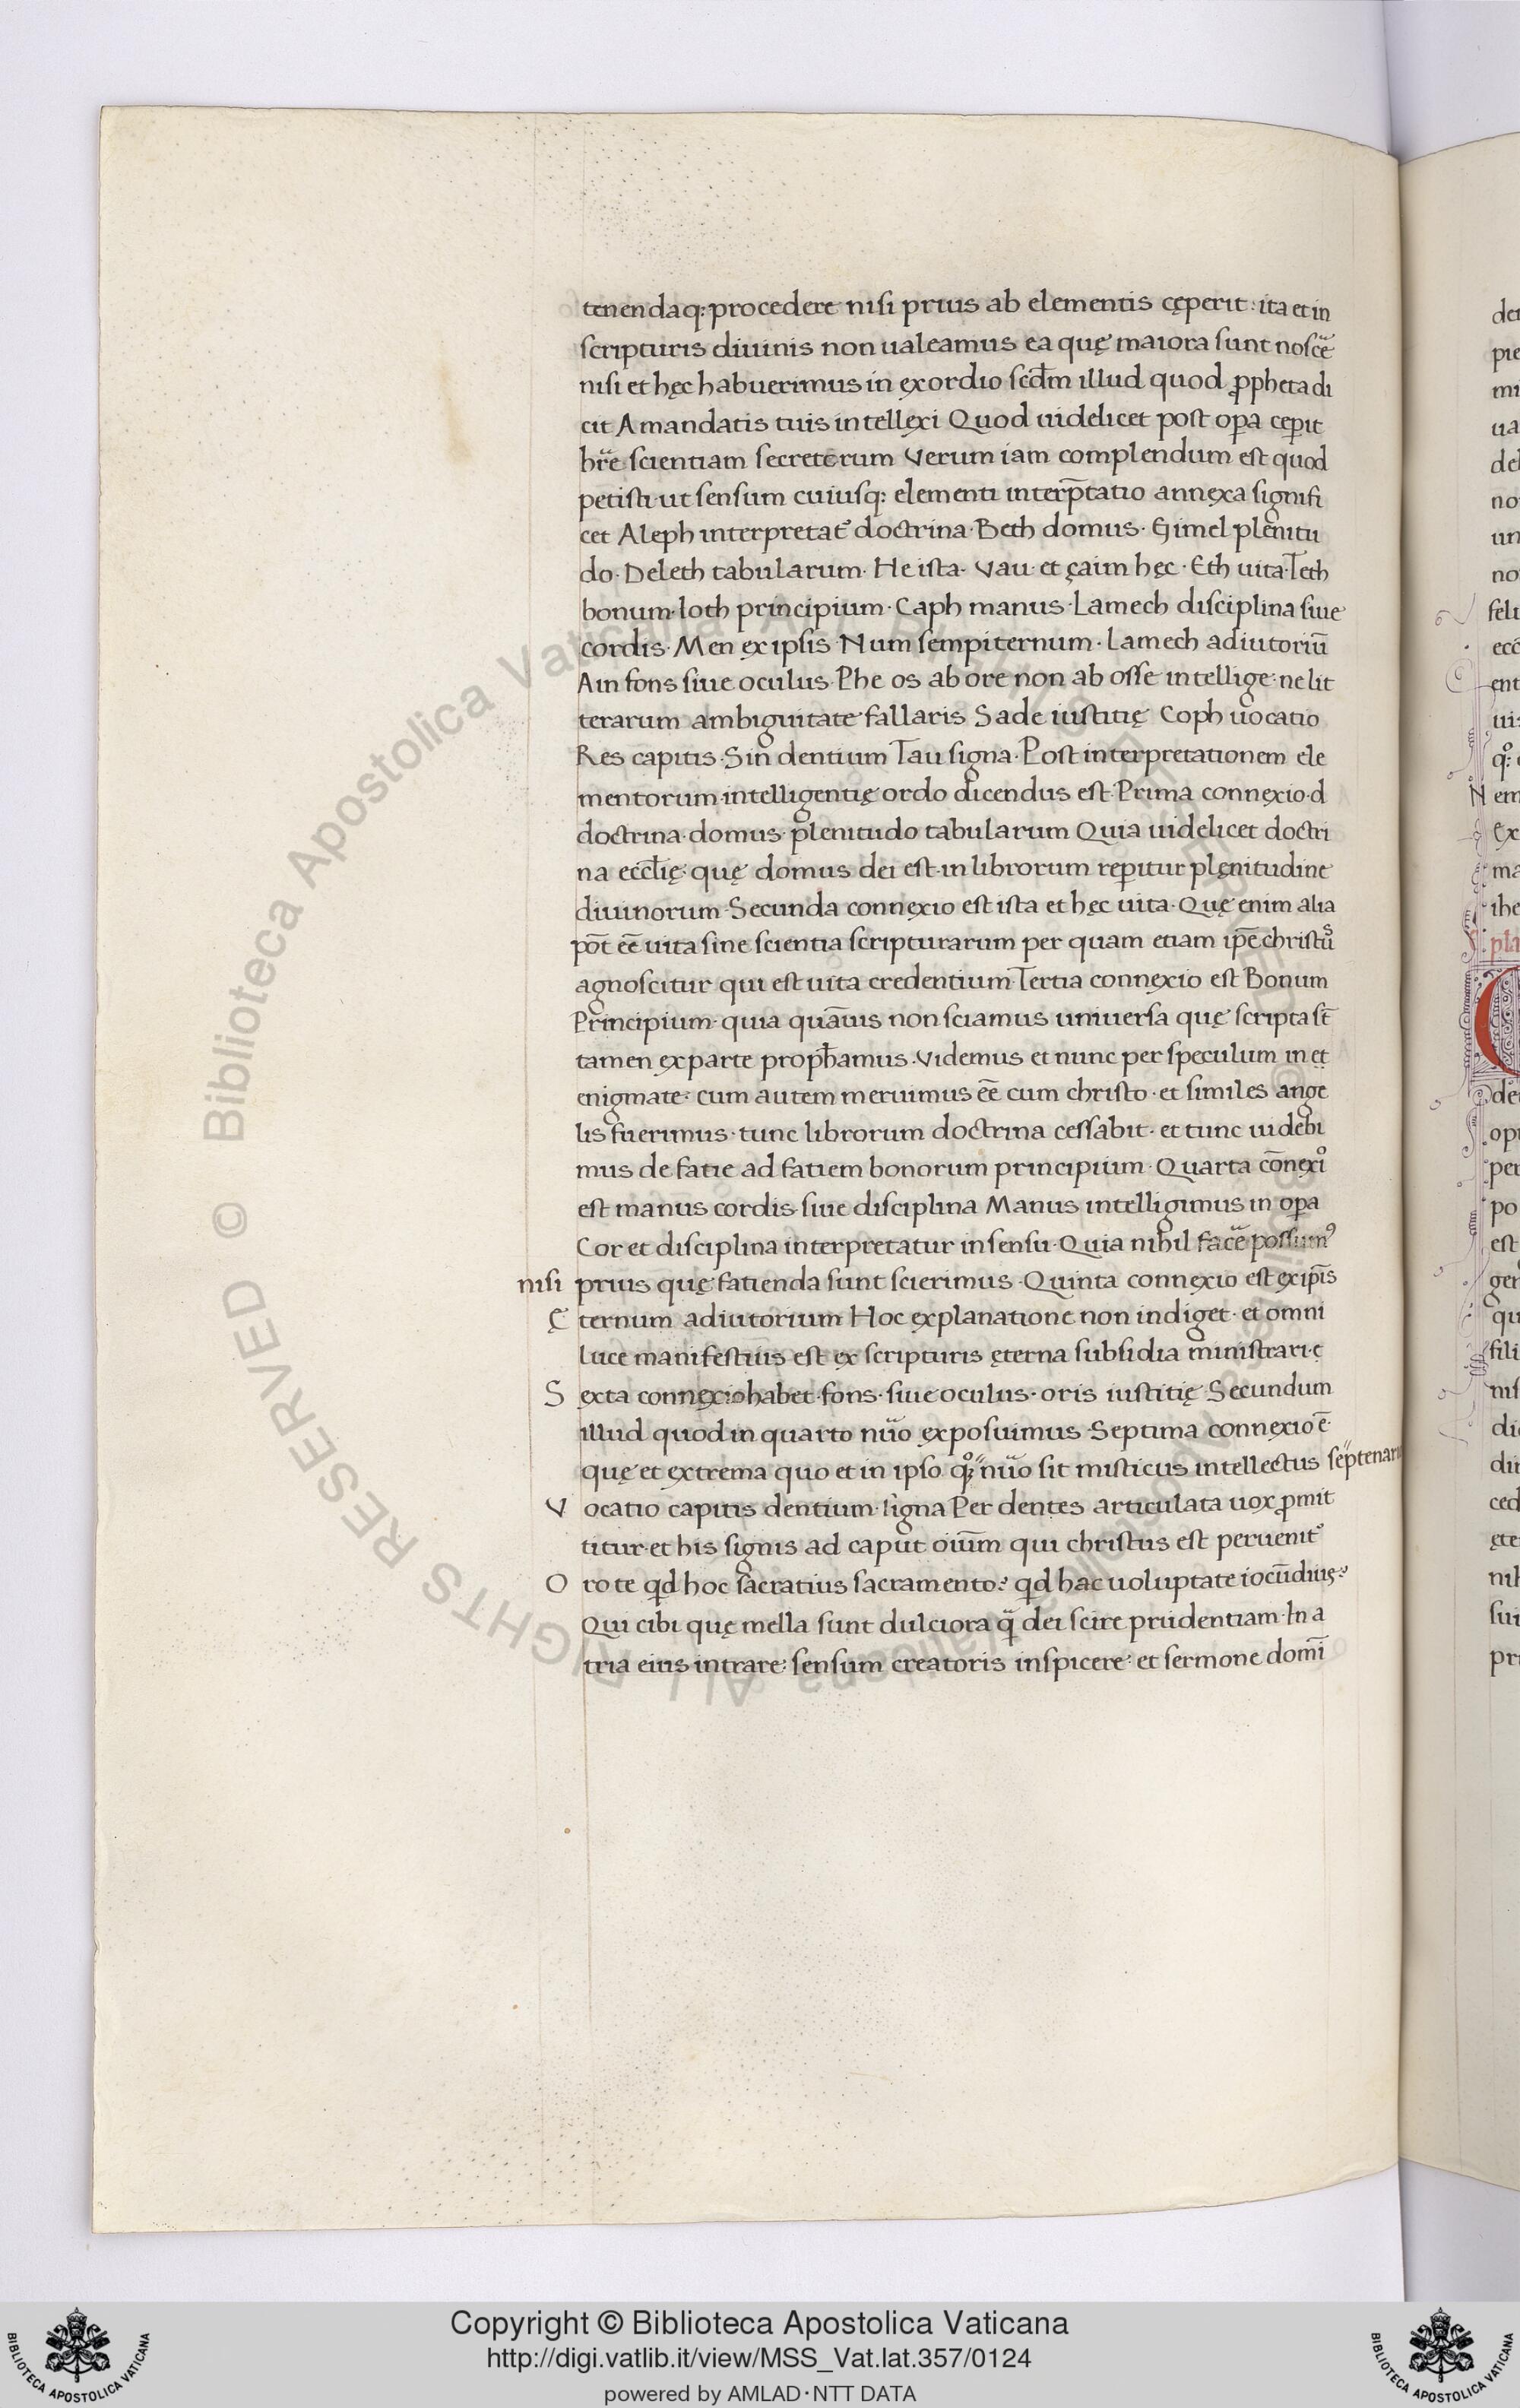 tenendaq: procedere nisi prius ab elementis cęperit: ita et in
scripturis diuinis non ualeamus ea quę maiora sunt nosc̄e
nisi et hęc habuerimus in exordio scd̄m illud quod ꝓpheta di
cit A mandatis tuis intellexi Quod uidelicet post oꝑa ceꝑit
hr̄e scientiam secretorum Verum iam complendum est quod
petisti ut sensum cuiusq: elementi interp̄tatio annexa signifi
cet Aleph interpretat᷒ doctrina· Beth domus· Gimel plenitu
do· Deleth tabularum· He ista· Vau et çaim hęc· Eth uita· Teth
bonum· Ioth principium· Caph manus· Lamech disciplina siue
cordis· Men ex ipsis Num sempiternum· Lamech adiutoriū
Ain fons siue oculus· Phe os ab ore non ab osse intellige: ne lit
terarum ambiguitate fallaris Sade iustitię Coph uocatio
Res capitis· Sin dentium Tau signa· Post interpretationem ele
mentorum· intelligentię ordo dicendus est· Prima connexio· d
doctrina· domus· plenitudo tabularum Quia uidelicet doctri
na eccl̄ię: quę domus dei est· in librorum reꝑitur plęnitudine
diuinorum· Secunda connexio est ista et hęc uita· Quę enim alia
pōt eē uita sine scientia scripturarum per quam etiam ip̄e christuˢ
agnoscitur qui est uita credentium· Tertia connexio est Bonum
Principium· quia quāuis non sciamus uniuersa quę scripta st̄
tamen ex parte proph̄amus· Videmus et nunc per speculum in et
enigmate: cum autem meruimus eē cum christo· et similes ange
lis fuerimus· tunc librorum doctrina cessabit· et tunc uidebi
mus de fatie ad fatiem bonorum principium· Quarta cōnexiᵒ
est manus cordis siue disciplina Manus intelligimus in oꝑa
Cor et disciplina interpretatur in sensu· Quia nihil fac̄e possumꝰ
nisi prius quę fatienda sunt scierimus· Quinta connexio est ex ip̄is
Ęternum adiutorium Hoc explanatione non indiget· et omni
luce manifestius est ex scripturis ęterna subsidia ministrari·ę
Sexta connexio habet· fons· siue oculus· oris iustitię Secundum
illud quod in quarto nūo exposuimus· Septima connexio ē·
quę et extrema quo et in ipso qͦꝫ nūo sit misticus intellectus septenar
Vocatio capitis dentium· signa Per dentes articulata uox ꝓmit
titur· et his signis ad caput oiūm qui christus est peruenit᷒
Oro te qd hoc sacratius sacramento? qd hac uoluptate iocūdius?
Qui cibi quę mella sunt dulciora q̄ dei scire prudentiam· In a
tria eius intrare: sensum creatoris inspicere: et sermone domī
Copyright © Biblioteca Apostolica Vaticana
http://digi.vatlib.it/view/MSS_Vat.lat.357/0124
powered by AMLAD·NTT DATA